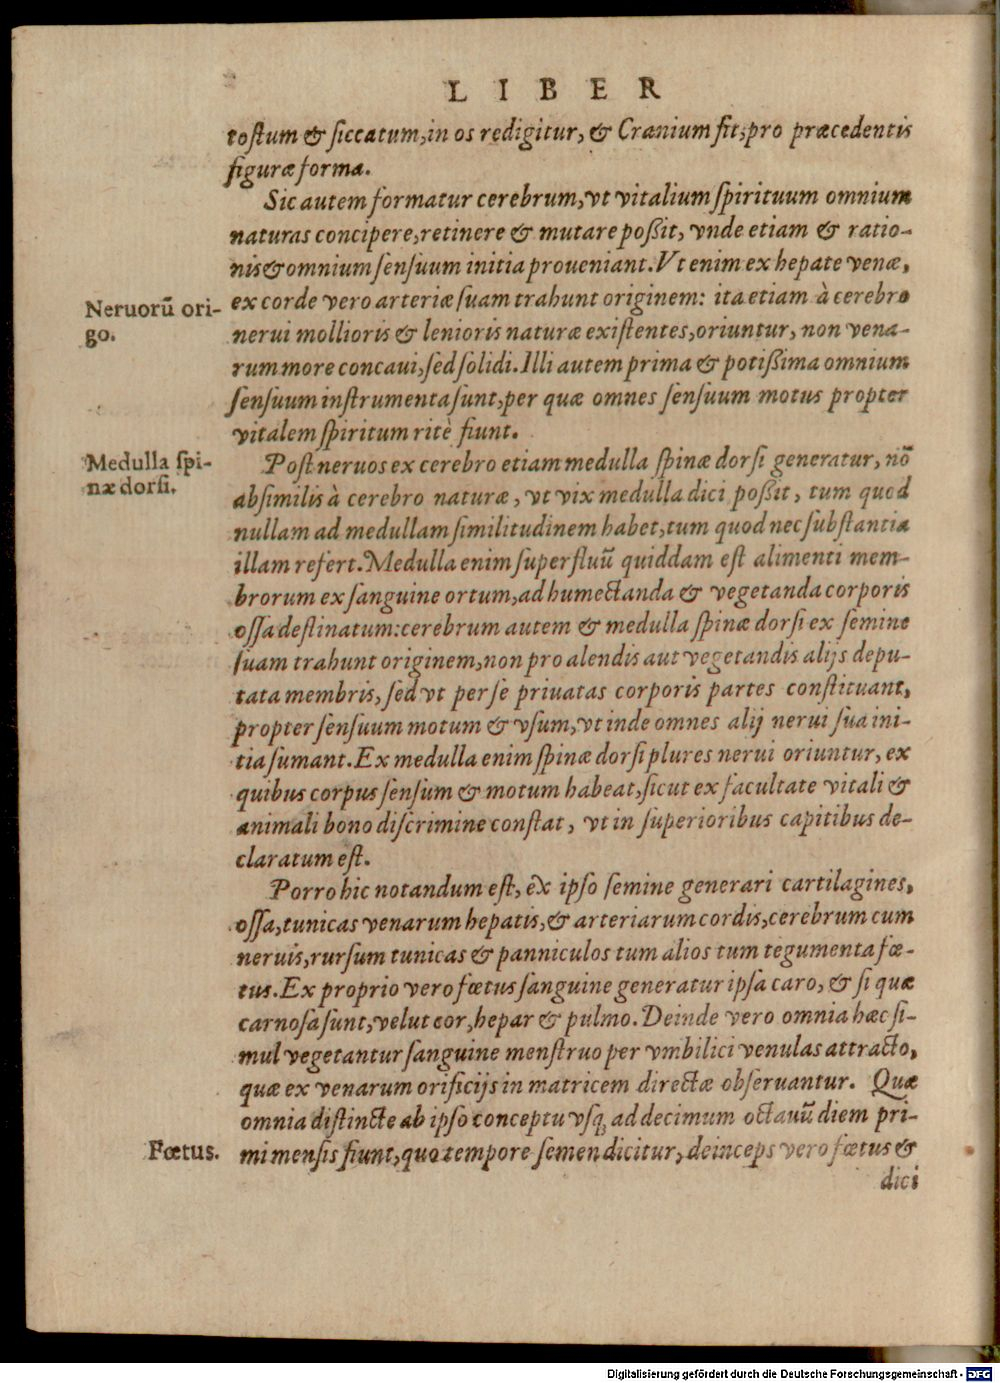 LIBER
tostum & siccatum, in os redigitur, & Cranium fit, pro præcedentis
figuræ forma.
Sic autem formatur cerebrum, vt vitalium spirituum omnium
naturas concipere, retinere & mutare possit, vnde etiam & ratio-
nis & omnium sensuum initia proueniant. Vt enim ex hepate venæ,
Neruorū ori-
go.
ex corde vero arteriæ suam trahunt originem: ita etiam à cerebro
nerui mollioris & lenioris naturæ existentes, oriuntur, non vena-
rum more concaui, sed solidi. Illi autem prima & potissima omnium
sensuum instrumenta sunt, per quæ omnes sensuum motus propter
vitalem spiritum ritè fiunt.
Medulla spi-
næ dorsi.
Post neruos ex cerebro etiam medulla spinæ dorsi generatur, nō
absimilis à cerebro naturæ, vt vix medulla dici possit, tum quod
nullam ad medullam similitudinem habet, tum quod nec substantia
illam refert. Medulla enim superfluū quiddam est alimenti mem-
brorum ex sanguine ortum, ad humectanda & vegetanda corporis
ossa destinatum: cerebrum autem & medulla spinæ dorsi ex semine
suam trahunt originem, non pro alendis aut vegetandis alijs depu-
tata membris, sed vt per se priuatas corporis partes constituant,
propter sensuum motum & vsum, vt inde omnes alij nerui sua ini-
tia sumant. Ex medulla enim spinæ dorsi plures nerui oriuntur, ex
quibus corpus sensum & motum habeat, sicut ex facultate vitali &
animali bono discrimine constat, vt in superioribus capitibus de-
claratum est.
Porro hic notandum est, ex ipso semine generari cartilagines,
ossa, tunicas venarum hepatis, & arteriarum cordis, cerebrum cum
neruis, rursum tunicas & panniculos tum alios tum tegumenta fœ-
tus. Ex proprio vero fœtus sanguine generatur ipsa caro, & si quæ
carnosa sunt, velut cor, hepar & pulmo. Deinde vero omnia hæc si-
mul vegetantur sanguine menstruo per vmbilici venulas attracto,
quæ ex venarum orificijs in matricem directæ obseruantur. Quæ
omnia distincte ab ipso conceptu vsq; ad decimum octauū diem pri-
Fœtus.
mi mensis fiunt, quo tempore semen dicitur, deinceps vero fœtus &
dici
Digitalisierung gefördert durch die Deutsche Forschungsgemeinschaft - DFG